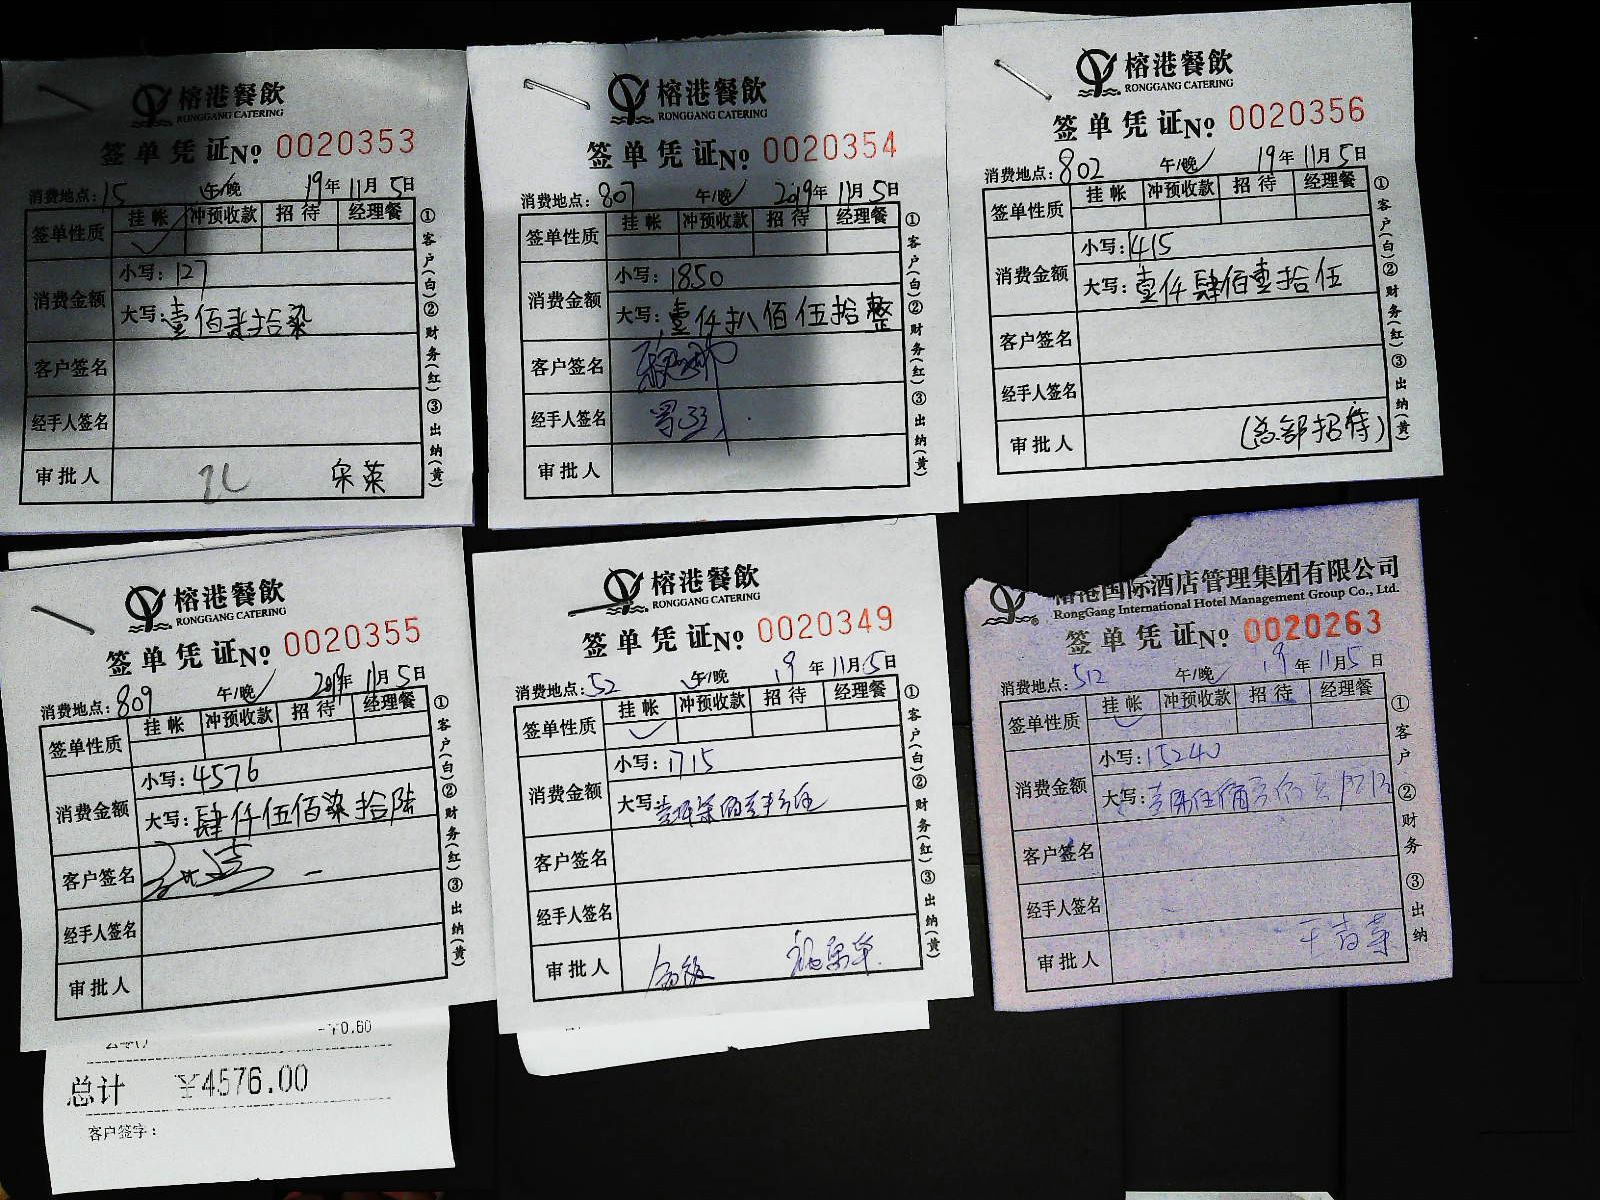 榕港餐飲
RONGGANG CATERING
签单凭证No 0020353
消费地点:15 午/晚 19年11月5日
签单性质 挂帐 冲预收款 招待 经理餐
消费金额 小写:127
大写:壹佰贰拾柒
客户签名
经手人签名
审批人
①客户(白)②财务(红)③出纳(黄)
榕港餐飲
RONGGANG CATERING
签单凭证No 0020354
消费地点:807 午/晚 2019年11月5日
签单性质 挂帐 冲预收款 招待 经理餐
消费金额 小写:1850
大写:壹仟捌佰伍拾整
客户签名
经手人签名
审批人
①客户(白)②财务(红)③出纳(黄)
榕港餐飲
RONGGANG CATERING
签单凭证No 0020356
消费地点:802 午/晚 19年11月5日
签单性质 挂帐 冲预收款 招待 经理餐
消费金额 小写:1415
大写:壹仟肆佰壹拾伍
客户签名
经手人签名
审批人 (总部招待)
①客户(白)②财务(红)③出纳(黄)
榕港餐飲
RONGGANG CATERING
签单凭证No 0020355
消费地点:809 午/晚 2019年11月5日
签单性质 挂帐 冲预收款 招待 经理餐
消费金额 小写:4576
大写:肆仟伍佰柒拾陆
客户签名
经手人签名
审批人
①客户(白)②财务(红)③出纳(黄)
-¥0.60
总计 ¥4576.00
客户签字:
榕港餐飲
RONGGANG CATERING
签单凭证No 0020349
消费地点:52 午/晚 19年11月5日
签单性质 挂帐 冲预收款 招待 经理餐
消费金额 小写:1715
大写:壹仟柒佰壹拾伍
客户签名
经手人签名
审批人
①客户(白)②财务(红)③出纳(黄)
榕港国际酒店管理集团有限公司
RongGang International Hotel Management Group Co., Ltd.
签单凭证No 0020263
消费地点:512 午/晚 19年11月5日
签单性质 挂帐 冲预收款 招待 经理餐
消费金额 小写:15240
大写:
客户签名
经手人签名
审批人
①客户②财务③出纳